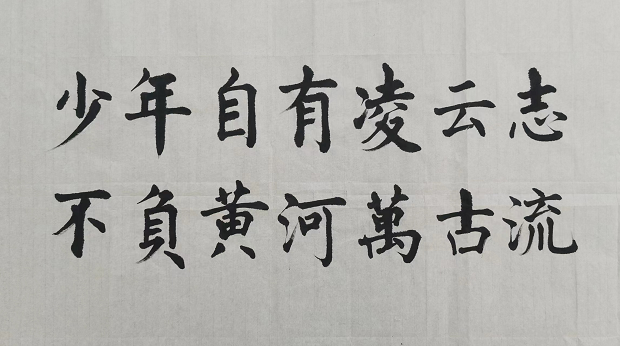 少年自有凌云志
不負黄河萬古流